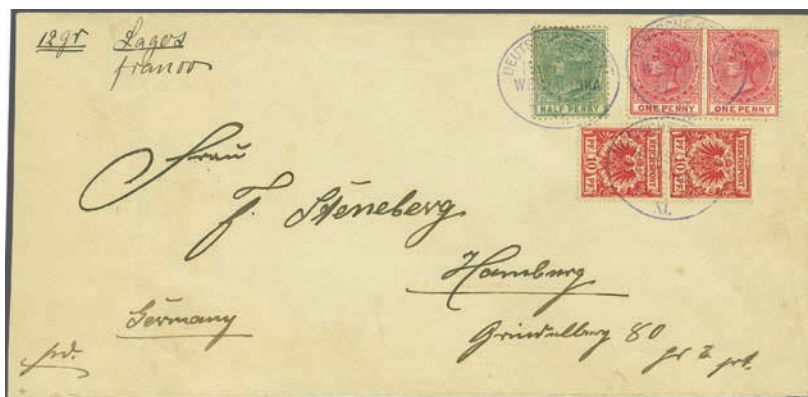 12 gr Lagos
franco
DEUTSCHE
W KA
HALF PENNY
ONE PENNY ONE PENNY
REICHSPOST REICHSPOST
10 PF. 10 PF.
XVII
Frau
F. Steneberg
Hamburg
Germany
Grindelberg 80